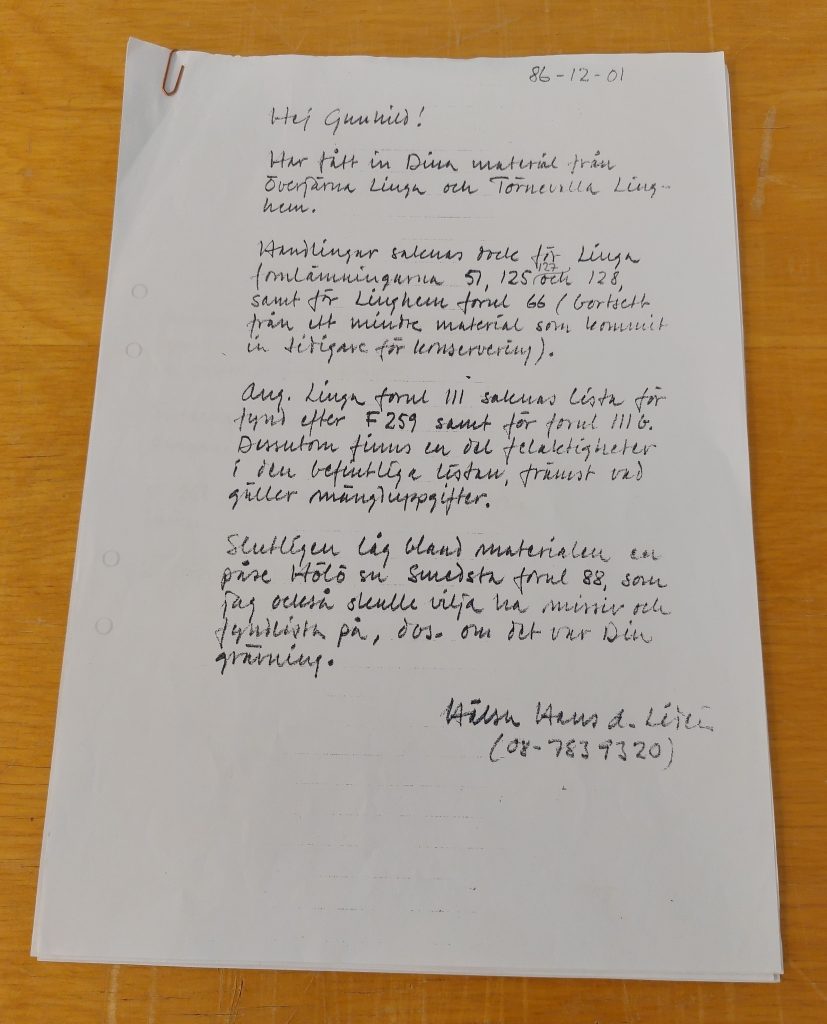 86-12-01
Hej Gunhild!
Har fått in Dina material från
Överjärna Linga och Törnevalla Ling-
hem.
Handlingar saknas dock för Linga
fornlämningarna 51, 125 127 och 128,
samt för Linghem fornl 66 (bortsett
från ett mindre material som kommit
in tidigare för konservering).
Ang. Linga fornl 111 saknas lista för
fynd efter F 259 samt för fornl 111b.
Dessutom finns en del felaktigheter
i den befintliga listan, främst vad
gäller mängduppgifter.
Slutligen låg bland materialen en
påse Hölö sn Smedsta fornl 88, som
jag också skulle vilja ha missiv och
fyndlista på, dvs. om det var Din
grävning.
Hälsn Hans d. Lidén
(08-7839320)